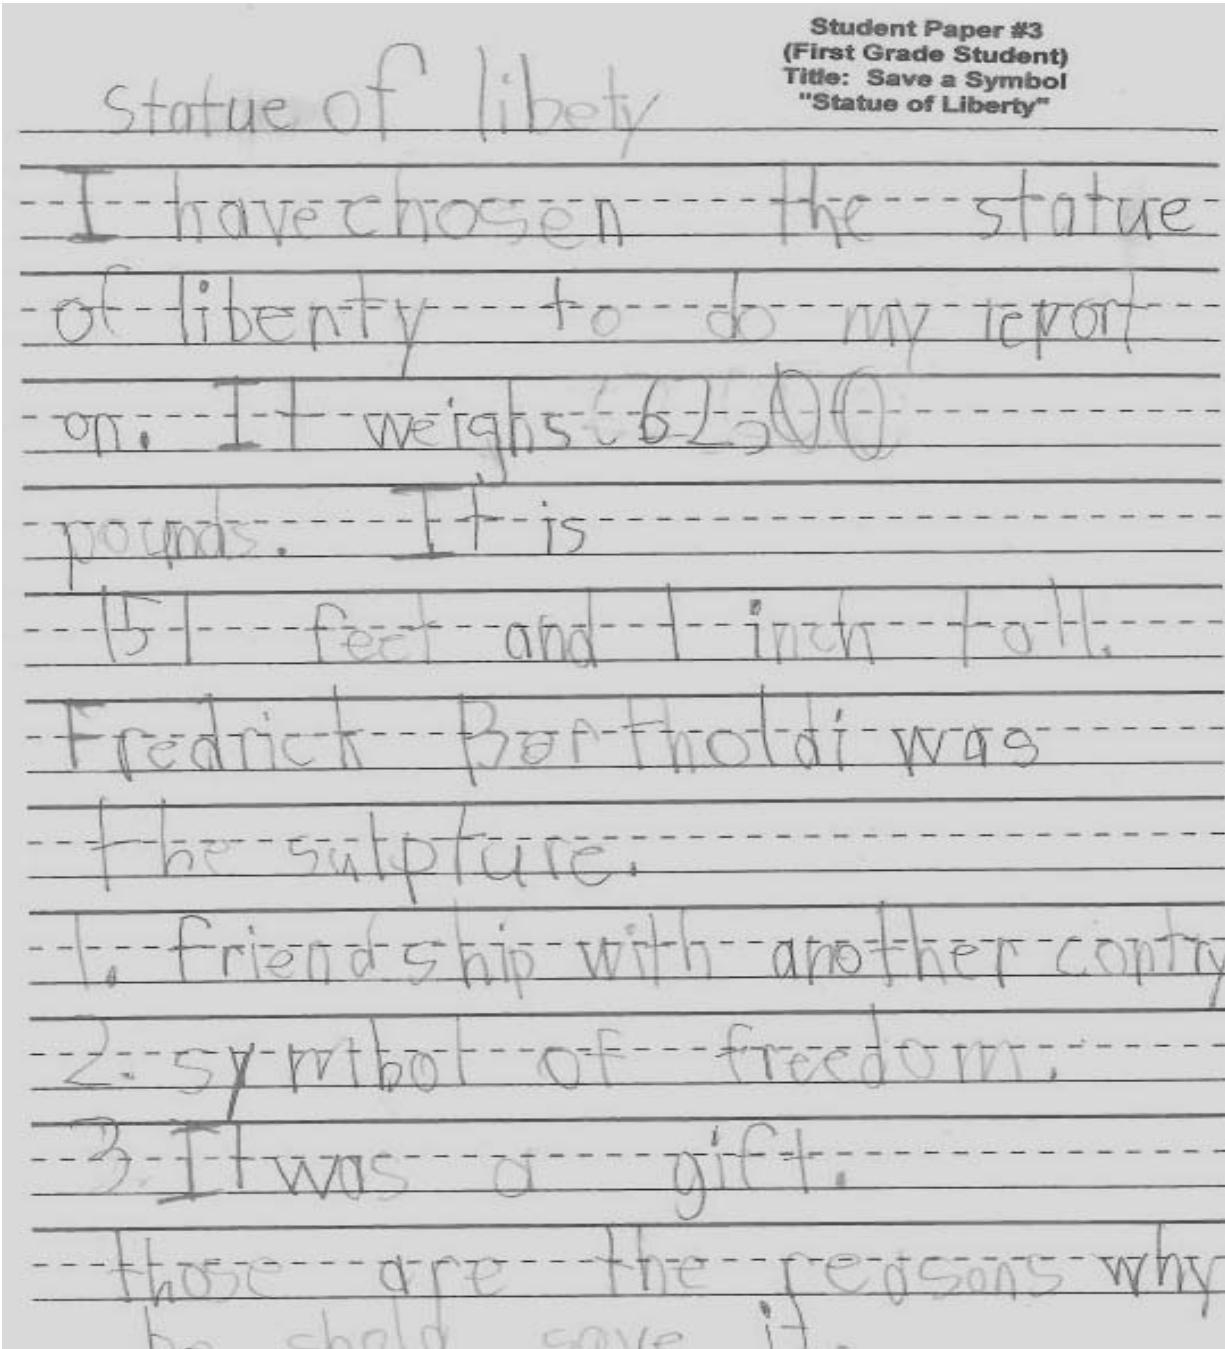 Student Paper #3
(First Grade Student)
Title: Save a Symbol
"Statue of Liberty"
statue of libety
I have chosen the statue
of liberty to do my report
on. It weighs 62,00
pounds. It is
151 feet and 1 inch tall.
Fredrick Bartholdi was
the sulpture.
1. friendship with another contry
2. symbol of freedom.
3. It was a gift.
those are the reasons why
he shold save it.